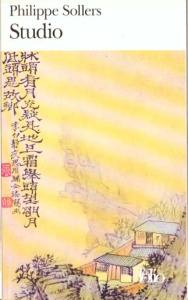 Philippe Sollers
Studio
頭有月光疑是地上霜舉頭望明月
低頭思故鄉
folio